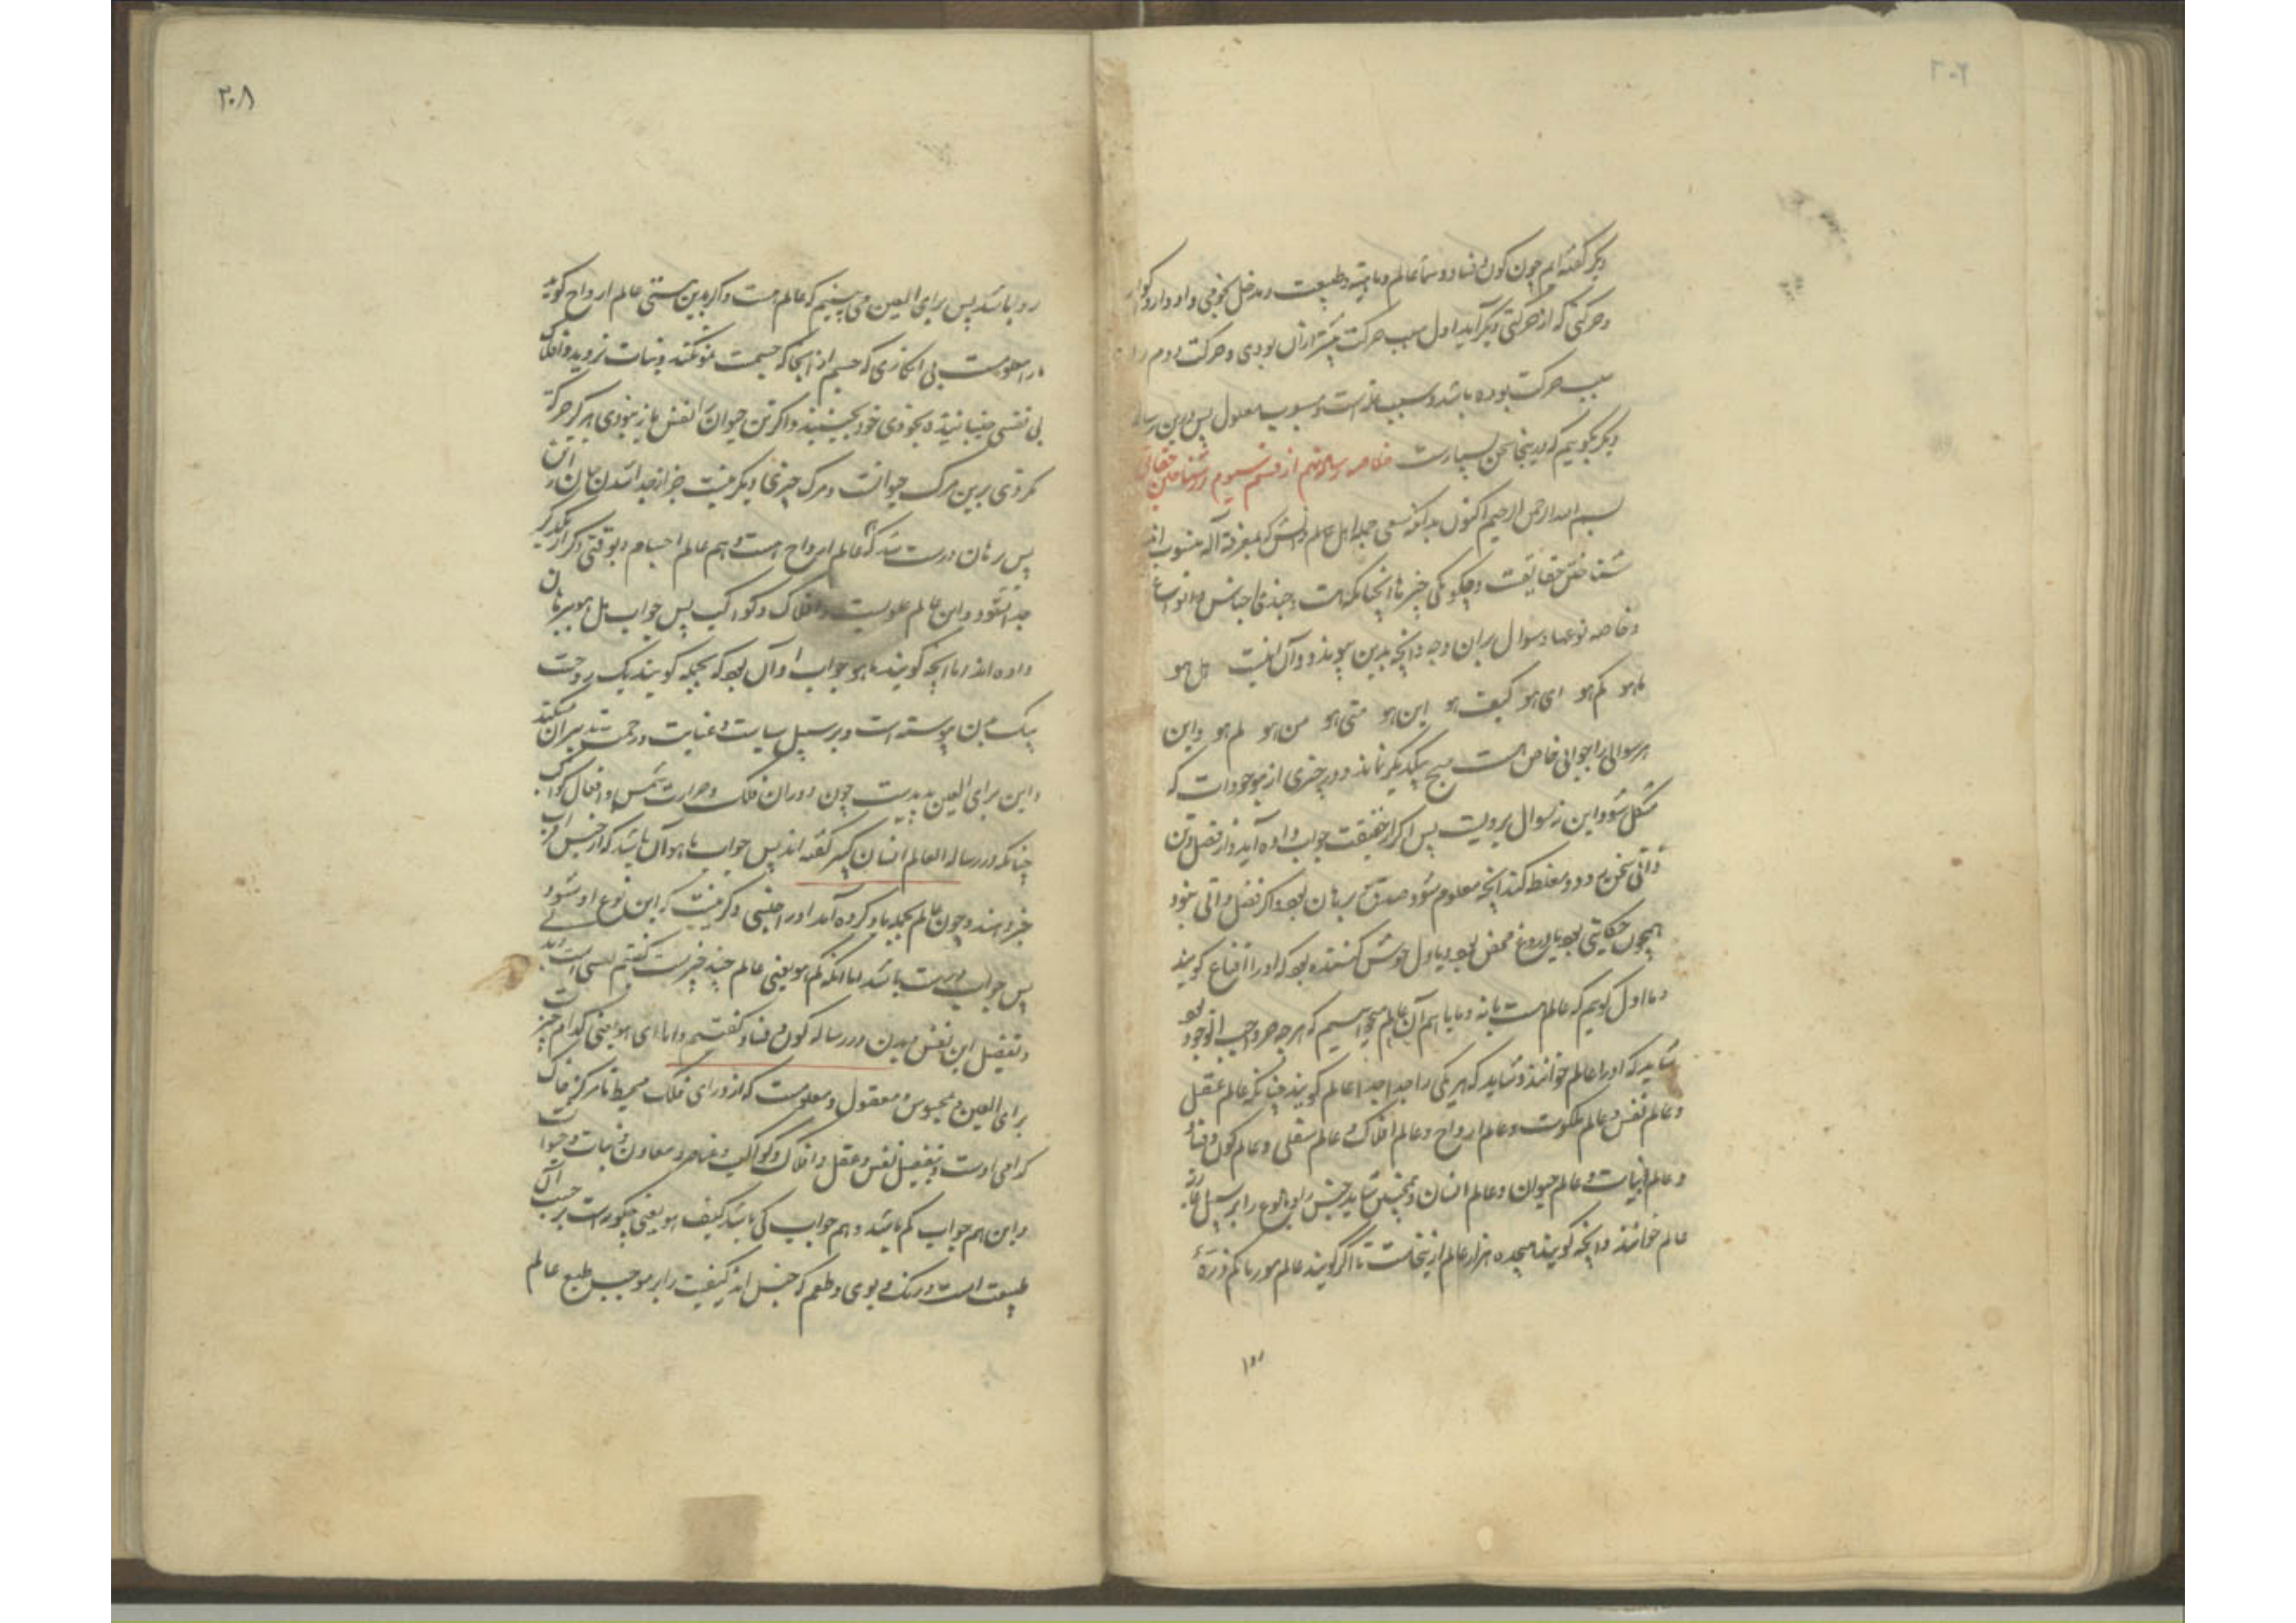 دیگر گفته‌ایم چون کون و فساد و سما عالم و ماهیة و طبیعت و مدخل نجومی و ادوار و اکوار
و حرکتی که از حرکتی دیگر آید اول سبب حرکت پیشتر از آن بودی و حرکت دوم را
سبب حرکت بوده باشد و سبب علت است و مسبب معلول پس درین رساله
دیگر بگوییم که درینجا سخن بسیارست خلاصه رساله نهم از قسم سیوم در شناختن حقایق
بسم الله الرحمن الرحیم اکنون بدانکه سعی جمله اهل عالم و دانش که بمعرفة آله منسوب اند
شناختن حقایقست و چگونگی چیزها آنچنانکه هست و چندی اجناس و انواع
و خاصه نوعها و سوال بر آن وجه و آنچه بدین پیوندد و آن اینست هل هو
ما هو کم هو ای هو کیف هو این هو متی هو من هو لم هو و این
هر سوالی را جوابی خاص هست هیچ بیکدیگر نماند و در چیزی از موجودات که
مشکل شود این نه سوال برویست پس اگر از حقیقت جواب داده آید و از فصل و تن
ذاتی سخن رود و مغلطه نکند آنچه معلوم شود صدق و برهان بود و اگر فصل ذاتی نبود
همچون حکایتی بود یا دروغ محض بود و یا دل خوش کننده بود که او را اقناع گویند
و ما اول گوییم که عالم هست یا نه و ما باسم آن عالم میخواهیم که هر چه جز واجب الوجود بود
شاید که او را عالم خوانند و شاید که هر یکی را جدا جدا عالم گویند چنانکه عالم عقل
و عالم نفس و عالم ملکوت و عالم ارواح و عالم افلاک و عالم سفلی و عالم کون و فساد
و عالم نبات و عالم حیوان و عالم انسان و همچنین شاید جنس را و انواع را بر سبیل عبارت
عالم خوانند و آنچه گویند هیجده هزار عالم ازینجاست تا اگر گویند عالم مور یا کم ذره
روا
۲۰۸
روا باشد پس برای العین می بینیم که عالم هست و اگر بدین هستی عالم ارواح گویند
ما را معلومست بی انکاری که جسم از آنجا که جسمست نمو نکند و نبات نروید و افلاک
بی نفسی جنباننده بخودی خود نجنبند و اگر تن حیوان النفس باز نبودی هرگز حرکة
نکردی برین مرگ حیوانست و مرگ چیزی دیگر نیست جز از جدا شدن جان از تن
پس برهان درست شد که عالم ارواح هست و هم عالم اجسام و بوقتی دیگر از یکدیگر
جدا شود و این عالم علویست و افلاک و کواکب پس جواب هل هو ببرهان
داده اند اما آنچه گویند ما هو جواب او آن بود که بجمله گویند یک روحست
بیک بدن پیوسته است و بر سبیل سیاست و عنایت و رحمت تدبیر آن میکند
و این برای العین پدیدست چون دوران فلک و حرارت شمس و افعال کواکب
چنانکه در رساله العالم انسان کبیر گفته اند پس جواب ما هو آن باشد که از جنس او
خبر دهند و چون عالم بجمله یاد کرده آمد او را جنسی دیگر نیست که این نوع او شود
پس جواب درست باشد اما آنکه کم هو یعنی عالم چند چیزست گفتیم نفسی است و بدنی
و تفصیل این نفس و بدن در رساله کون و فساد گفتیم و اما ای هو یعنی کدام چیزست
برای العین و محسوس و معقول و معلومست که از ورای فلک محیط تا مرکز خاک
کدامی اوست و تفصیل نفس و عقل و افلاک و کواکب و عناصر و معادن و نبات و حیوانات
و این هم جواب کم باشد و هم جواب کی باشد کیف هو یعنی چگونه است بر حسب آن
طبیعت است و رنگ و بوی و طعم که جنس اند کیفیت را بر موجب طبع عالم